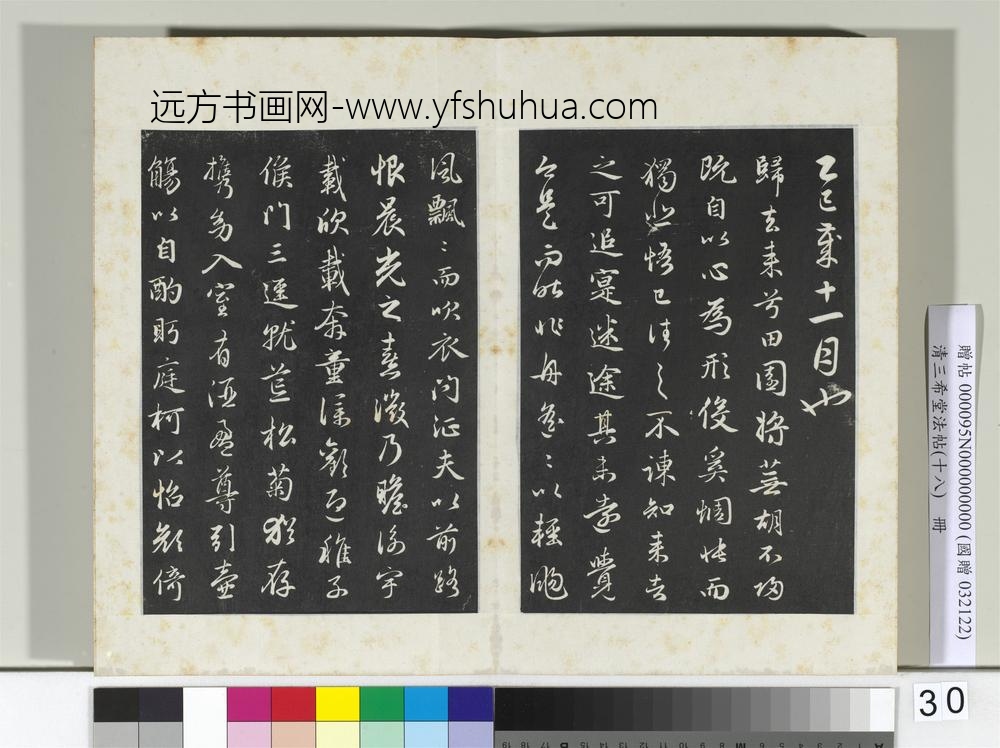 远方书画网-www.yfshuhua.com
乙巳歲十一月也
歸去来兮田園將蕪胡不歸
既自以心為形役奚惆悵而
獨悲悟已往之不諫知来者
之可追寔迷途其未遠覺
今是而昨非舟遙〻以輕颺
風飄〻而吹衣問征夫以前路
恨晨光之熹微乃瞻衡宇
載欣載奔童僕歡迎稚子
候門三逕就荒松菊猶存
携幼入室有酒盈尊引壺
觴以自酌眄庭柯以怡顏倚
贈帖 000095N000000000 (國贈 032122)
清三希堂法帖(十八) 冊
30